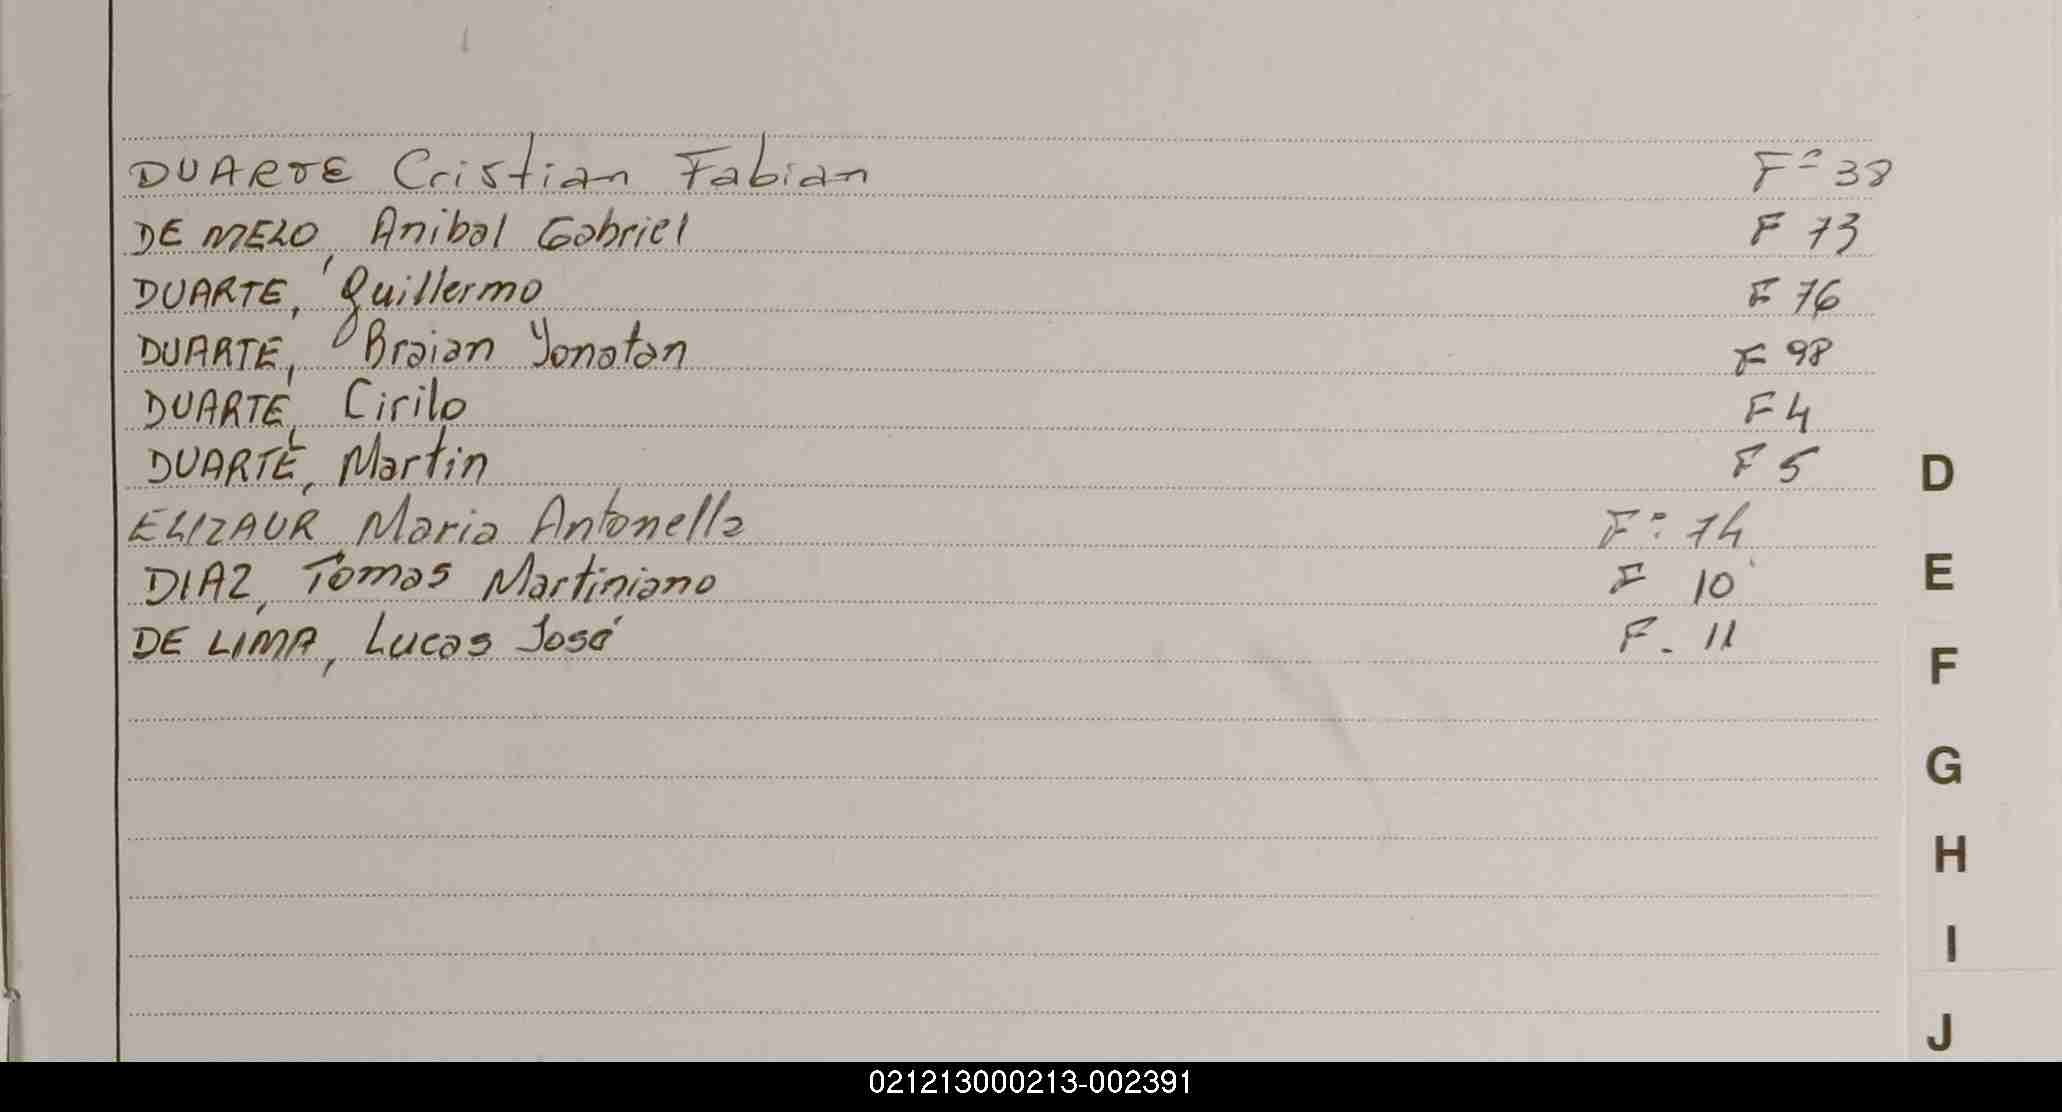 DUARTE Cristian Fabian F° 38
DE MELO, Anibal Gabriel F 73
DUARTE, Guillermo F 76
DUARTE, Braian Yonatan F 98
DUARTE, Cirilo F 4
DUARTE, Martin F 5
ELIZAUR Maria Antonella F° 74
DIAZ, Tomas Martiniano F 10
DE LIMA, Lucas José F. 11
D
E
F
G
H
I
J
021213000213-002391